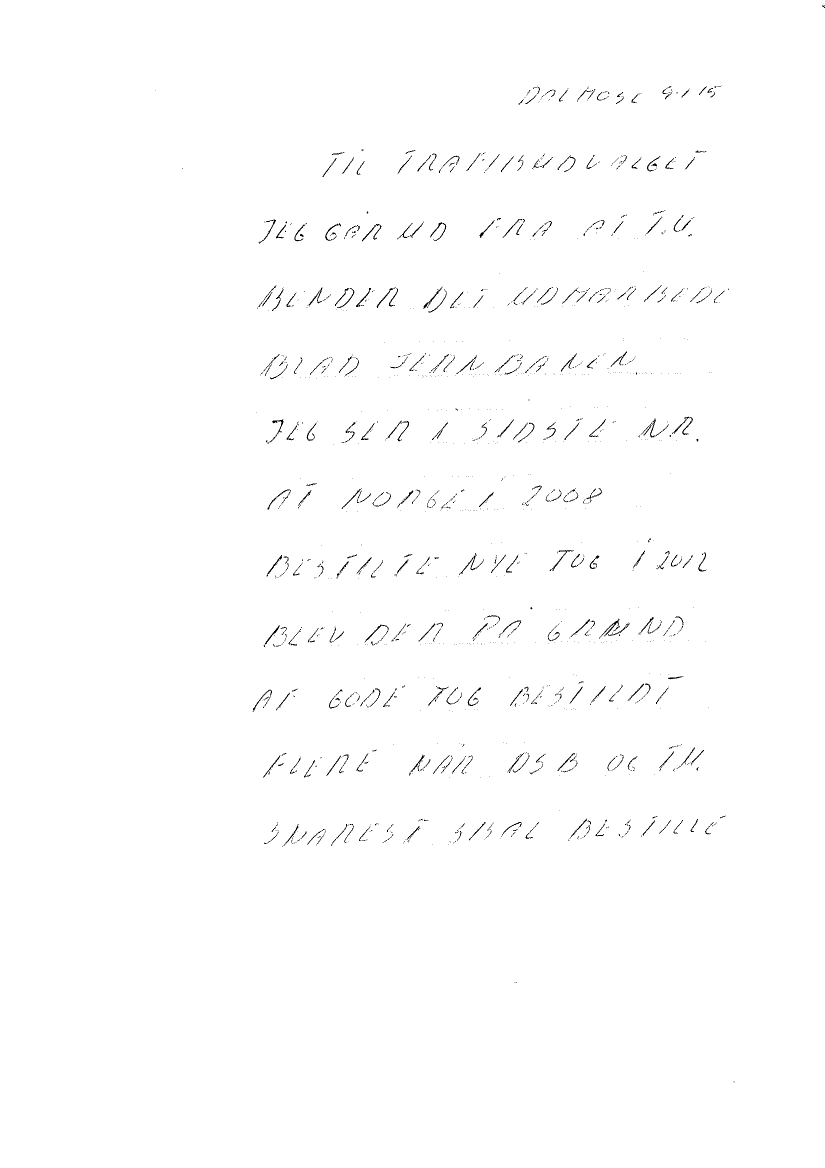 DALMOSE 9.1 15
TIL TRAFIKUDVALGET
JEG GÅR UD FRA AT T.U.
KENDER DET UDMARKEDE
BLAD JERNBANEN
JEG SER I SIDSTE NR.
AT NORGE I 2008
BESTILTE NYE TOG I 2012
BLEV DER PÅ GRUND
AF GODE TOG BESTILDT
FLERE NÅR DSB OG TM.
SNAREST SKAL BESTILLE